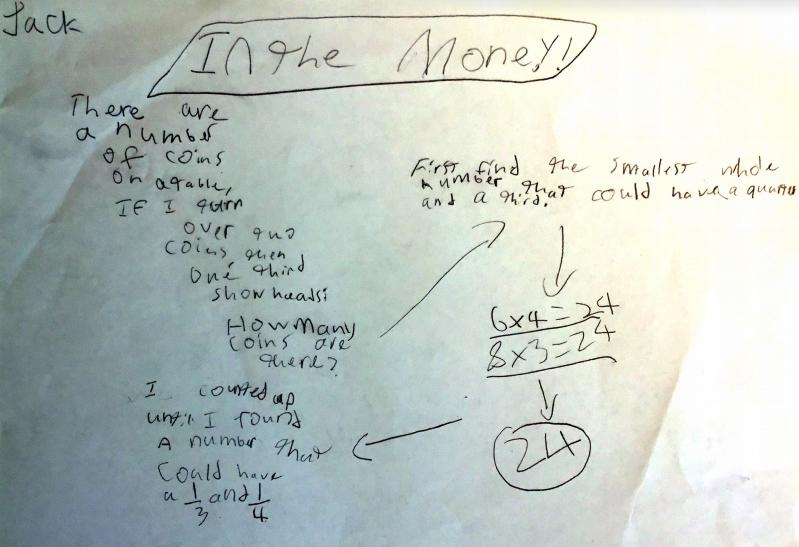 Jack
In the Money!
There are
a number
of coins
on a table,
If I turn
over two
coins, then
one third
show heads:
How Many
coins are
there?
First find the smallest whole
number that could have a quarter
and a third.
6x4=24
8x3=24
24
I counted up
until I found
A number that
could have
a 1/3 and 1/4